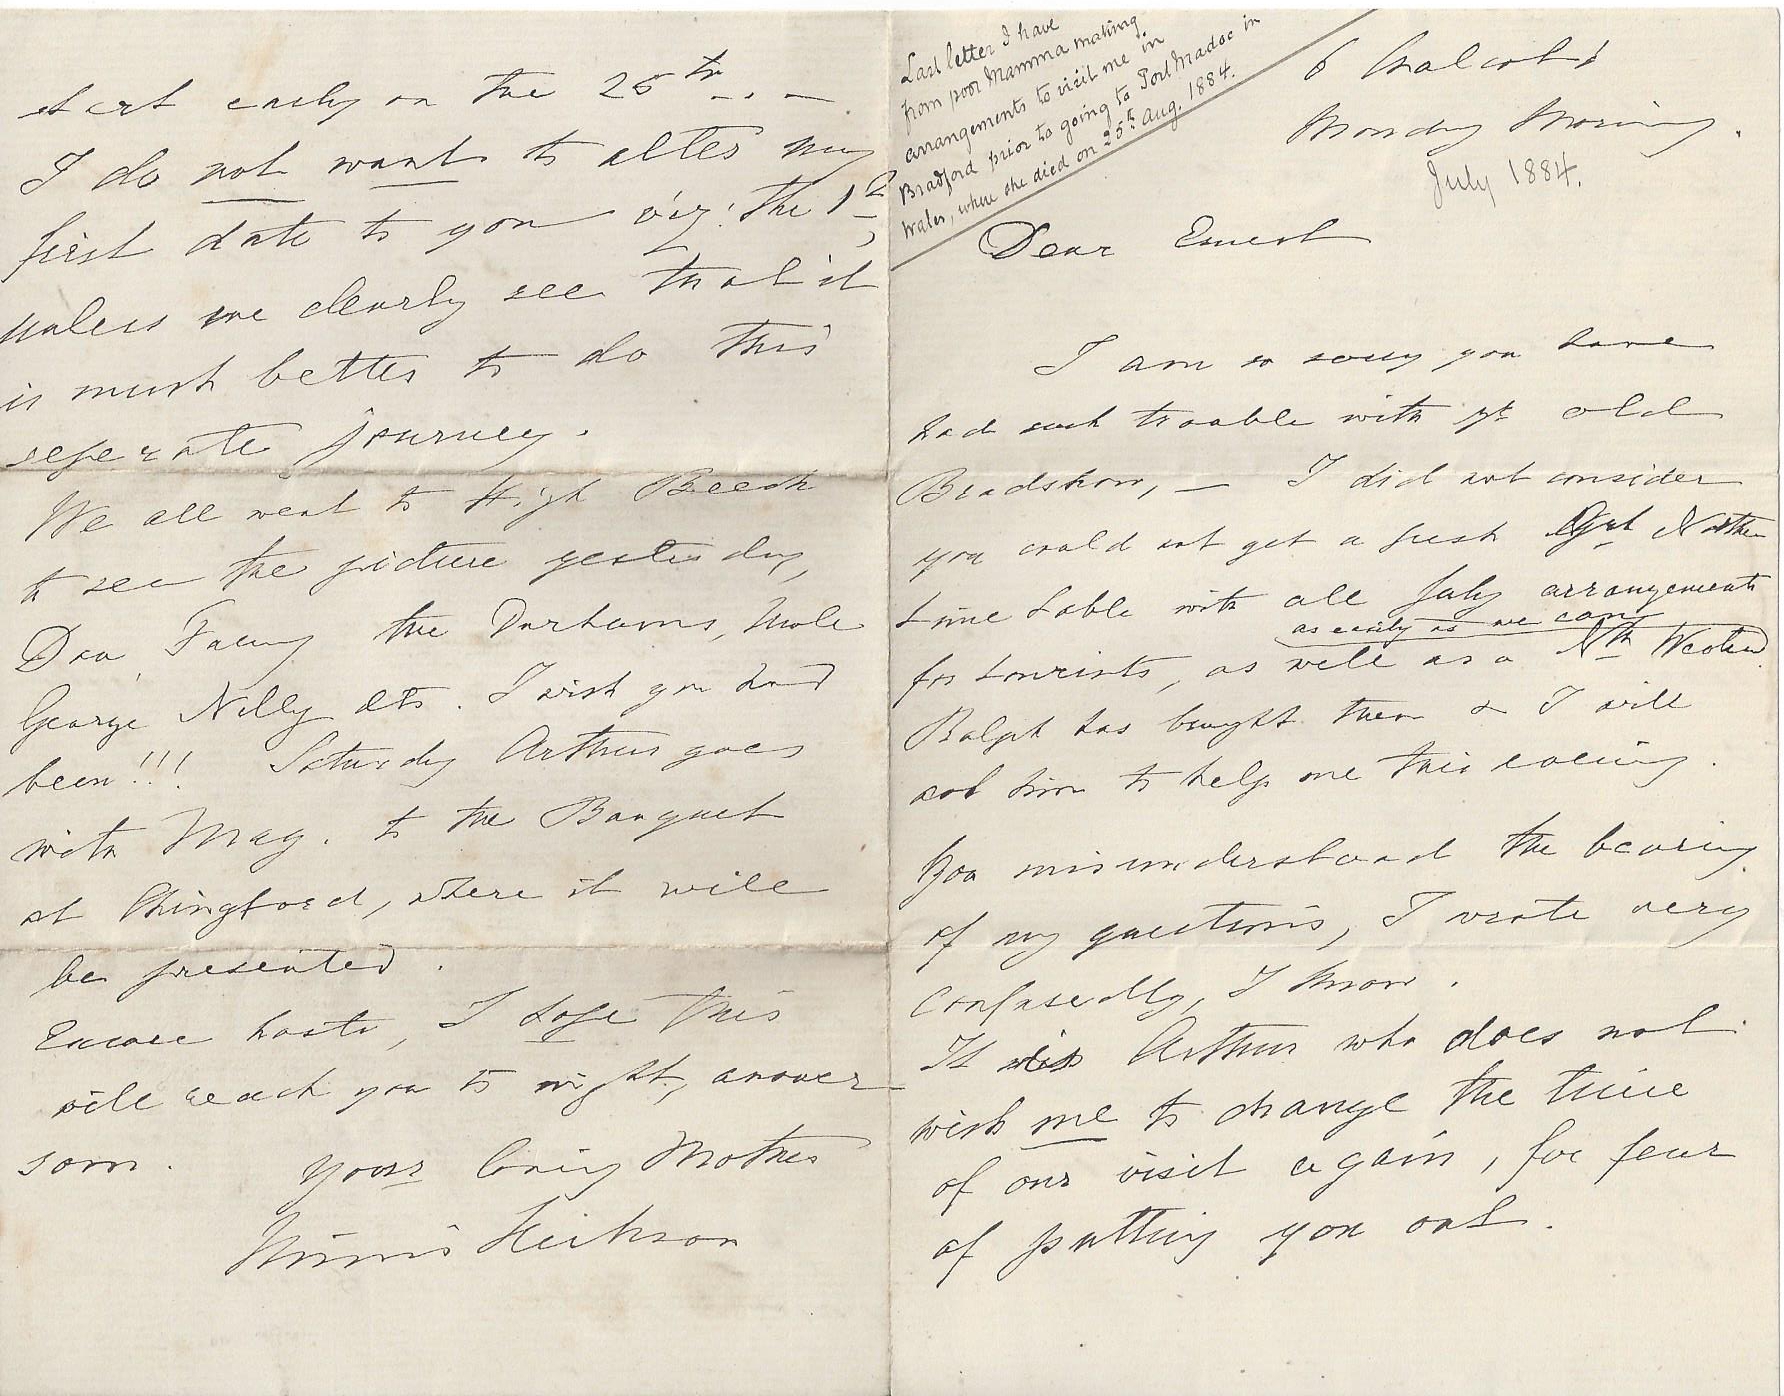 Last letter I have
from poor Mamma making
arrangements to visit me in
Bradford prior to going to Port Madoc in
Wales, where she died on 25th Aug. 1884.
6
Monday Morning.
July 1884.
Dear Ernest
I am so sorry you have
had such trouble with yr old
Bradshaw, — I did not consider
you could not get a fresh Gt Northern
time table with all July arrangements
as easily as we can
for tourists, as well as a Nth Western
Ralph has bought them & I will
ask him to help me this evening.
You misunderstood the bearing
of my questions, I wrote very
confusedly, I know.
It is Arthur who does not
wish me to change the time
of our visit again, for fear
of putting you out.
start early on the 25th . . —
I do not want to alter my
first date to you viz: the 1st,
unless we clearly see that it
is much better to do this
seperate journey.
We all went to High Beech
to see the picture yesterday,
the Durhams, Uncle
George Nelly etc. I wish you had
been!!! Saturday Arthur goes
with May. to the Banquet
at Chingford, where it will
be presented.
Excuse haste, I hope this
will reach you to night, answer
soon.
Yours loving Mother